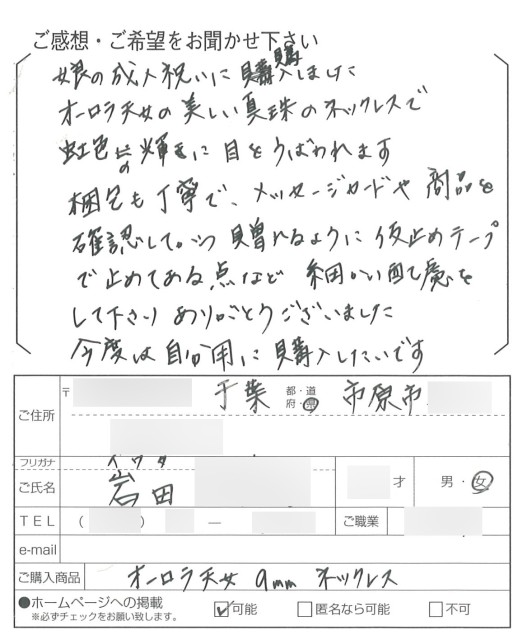 ご感想・ご希望をお聞かせ下さい
娘の成人祝いに購入しました
オーロラ天女の美しい真珠のネックレスで
虹色の輝きに目をうばわれます
梱包も丁寧で、メッセージカードや商品を
確認してから贈れるように仮止めテープ
で止めてある点など細かい配慮を
して下さりありがとうございました
今度は自分用に購入したいです
ご住所 〒 千葉 都・道 府・県 市原市
フリガナ イワタ
ご氏名 岩田 才 男・女
TEL ( ) — ご職業
e-mail
ご購入商品 オーロラ天女 9mm ネックレス
●ホームページへの掲載 ☑可能 □匿名なら可能 □不可
※必ずチェックをお願い致します。